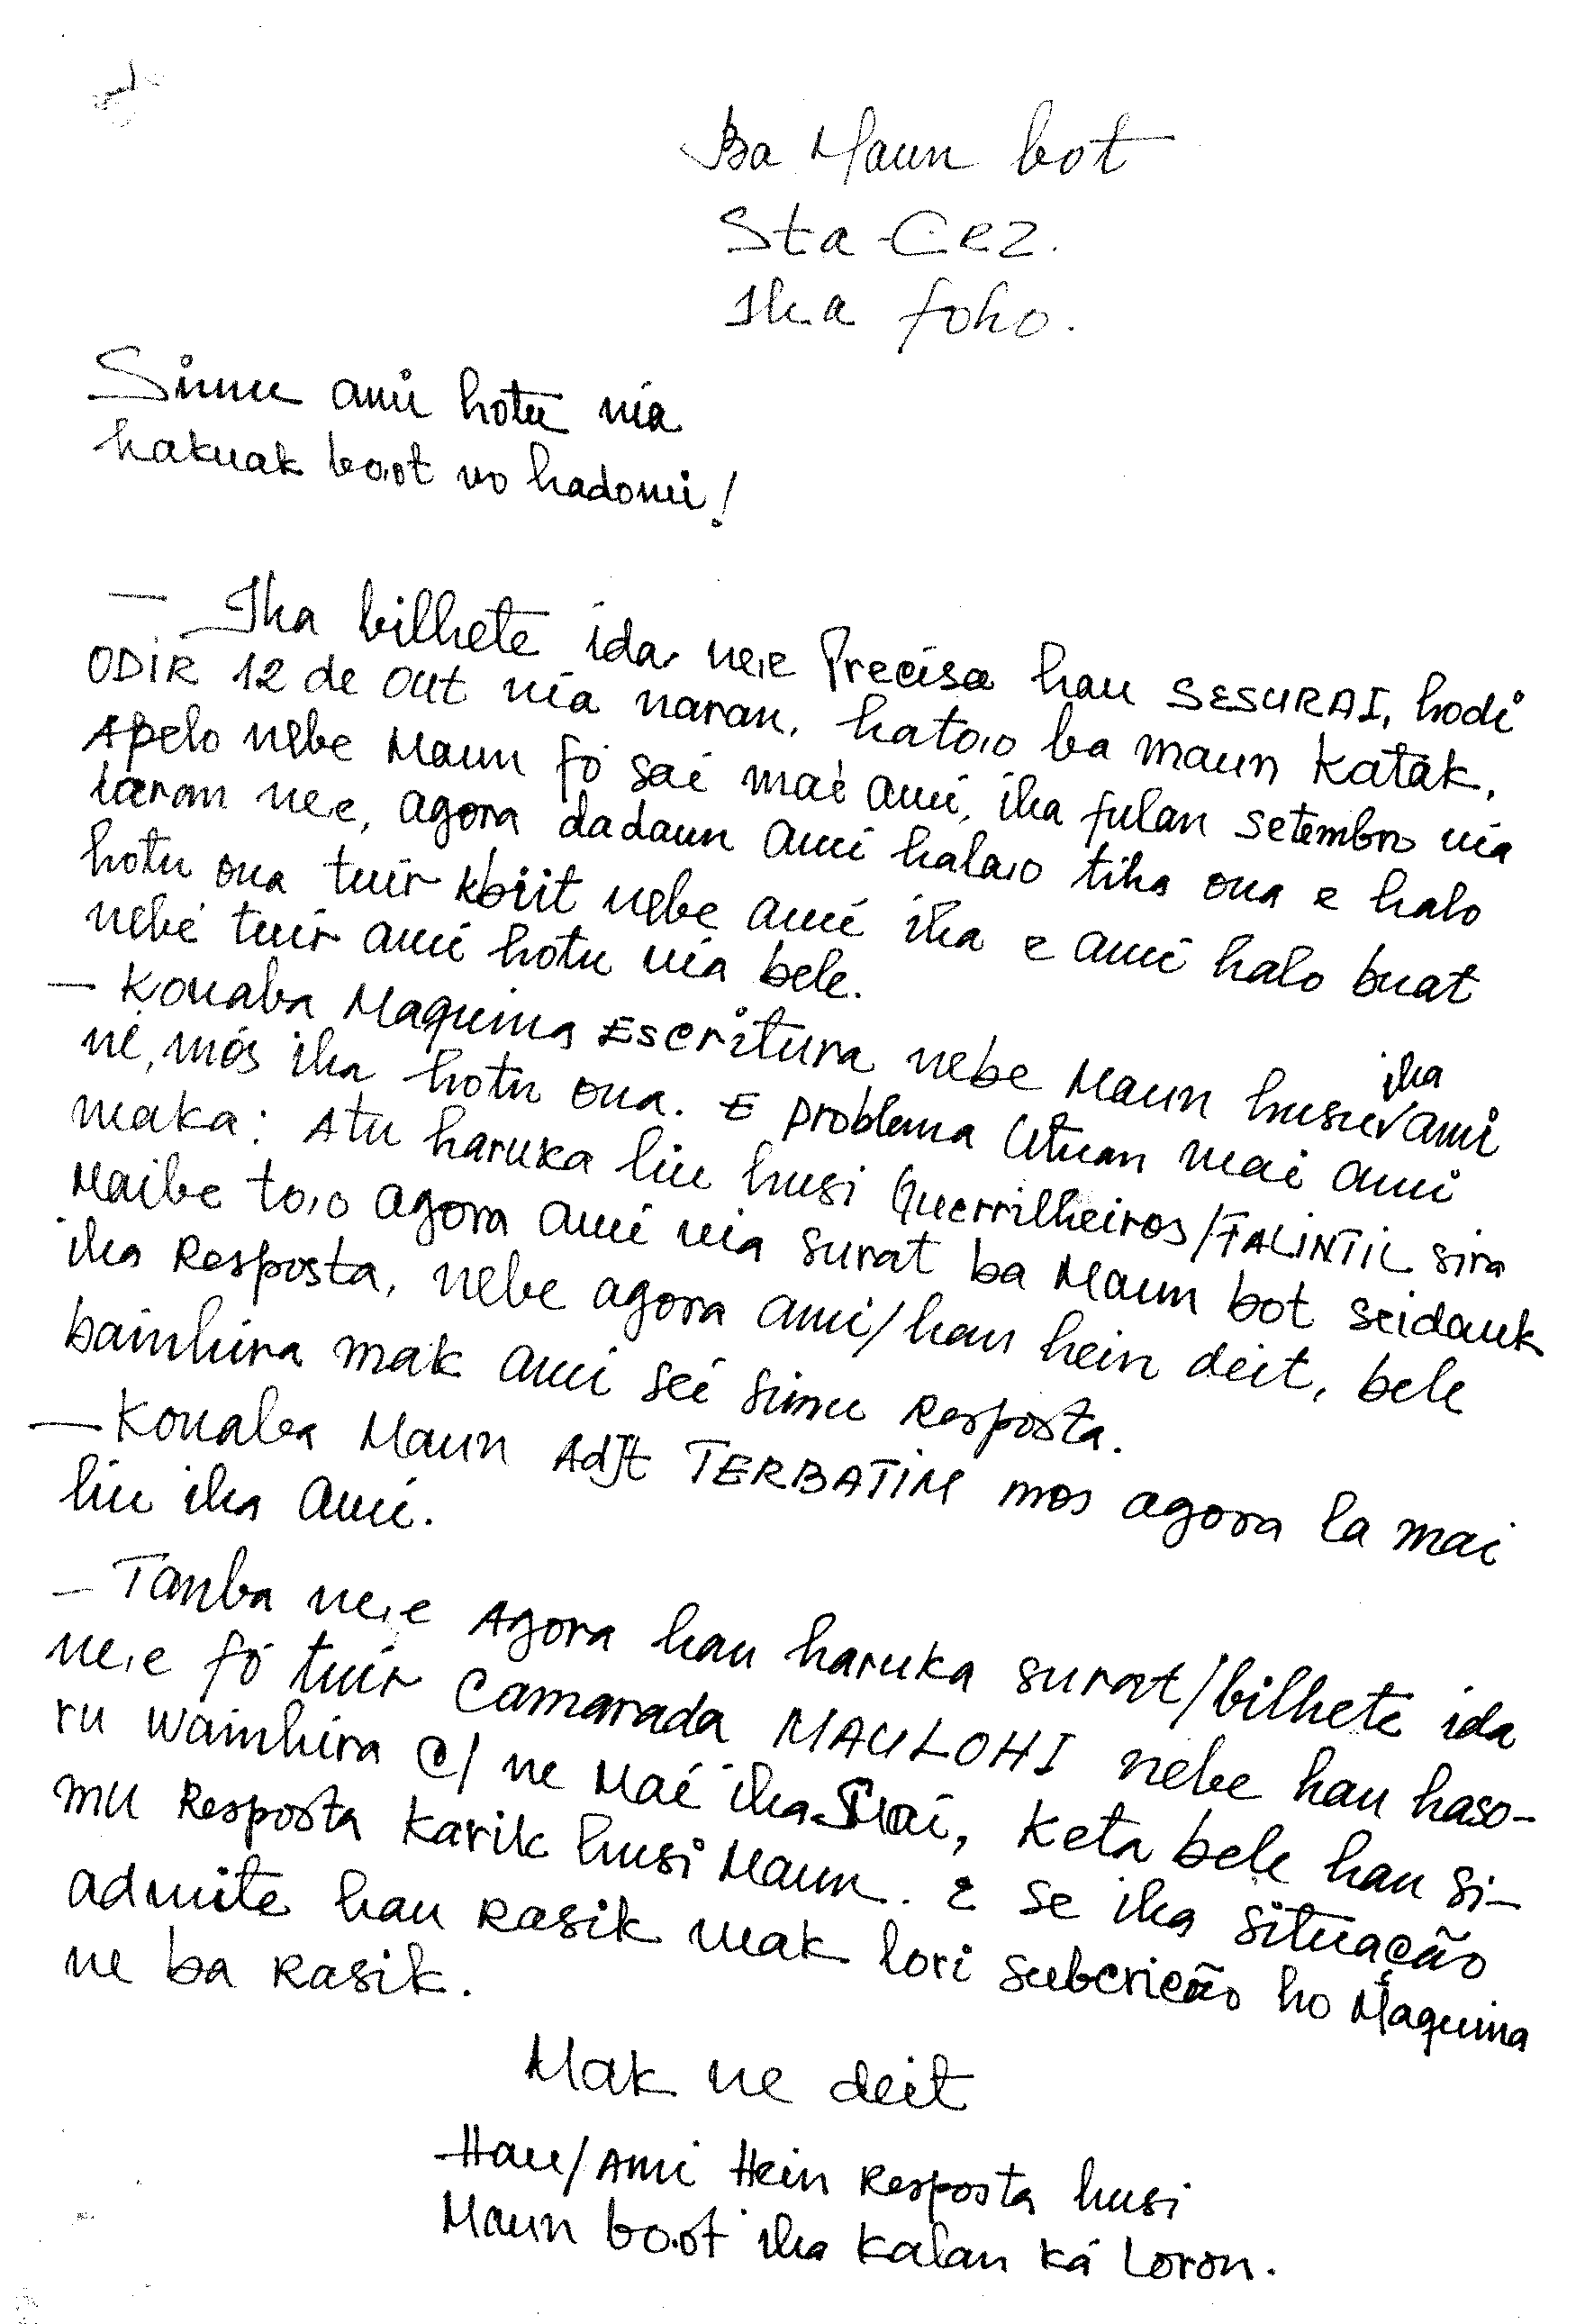 Ba Maun bot
Sta Cez.
Iha foho.
Simu ami hotu nia
hakuak bo,ot no hadomi!
— Iha bilhete ida ne,e Precisa hau SESURAI, hodi
ODIR 12 de OUT nia naran, hato,o ba maun Katak,
Apelo nebe Maun fó sai mai ami, iha fulan Setembro nia
laran ne,e, agora dadaun ami hala,o tiha ona e halo
hotu ona tuir kbiit nebe ami iha e ami halo buat
nebé tuir ami hotu nia bele.
— Konaba Maquina Escritura nebe Maun husu iha ami
né, mós iha hotu ona. E problema Uituan mai ami
maka: Atu haruka liu husi Guerrilheiros/FALINTIL sira
Maibe to,o agora ami nia surat ba Maun bot seidauk
iha Resposta, nebe agora ami/hau hein deit, bele
bainhira mak ami sei simu Resposta.
— Konaba Maun Adjt TERBATIM mos agora la mai
liu iha ami.
— Tanba ne,e Agora hau haruka surat/bilhete ida
ne,e fó tuir Camarada MAULOHI nebe hau haso-
ru wainhira C/ ne Mai iha Mai, Keta bele hau si-
mu Resposta Karik husi Maun. E se iha situação
admite hau Rasik mak lori subcrição ho Maquina
ne ba Rasik.
Mak ne deit
Hau/Ami Hein Resposta husi
Maun bo,ot iha Kalan Ká Loron.